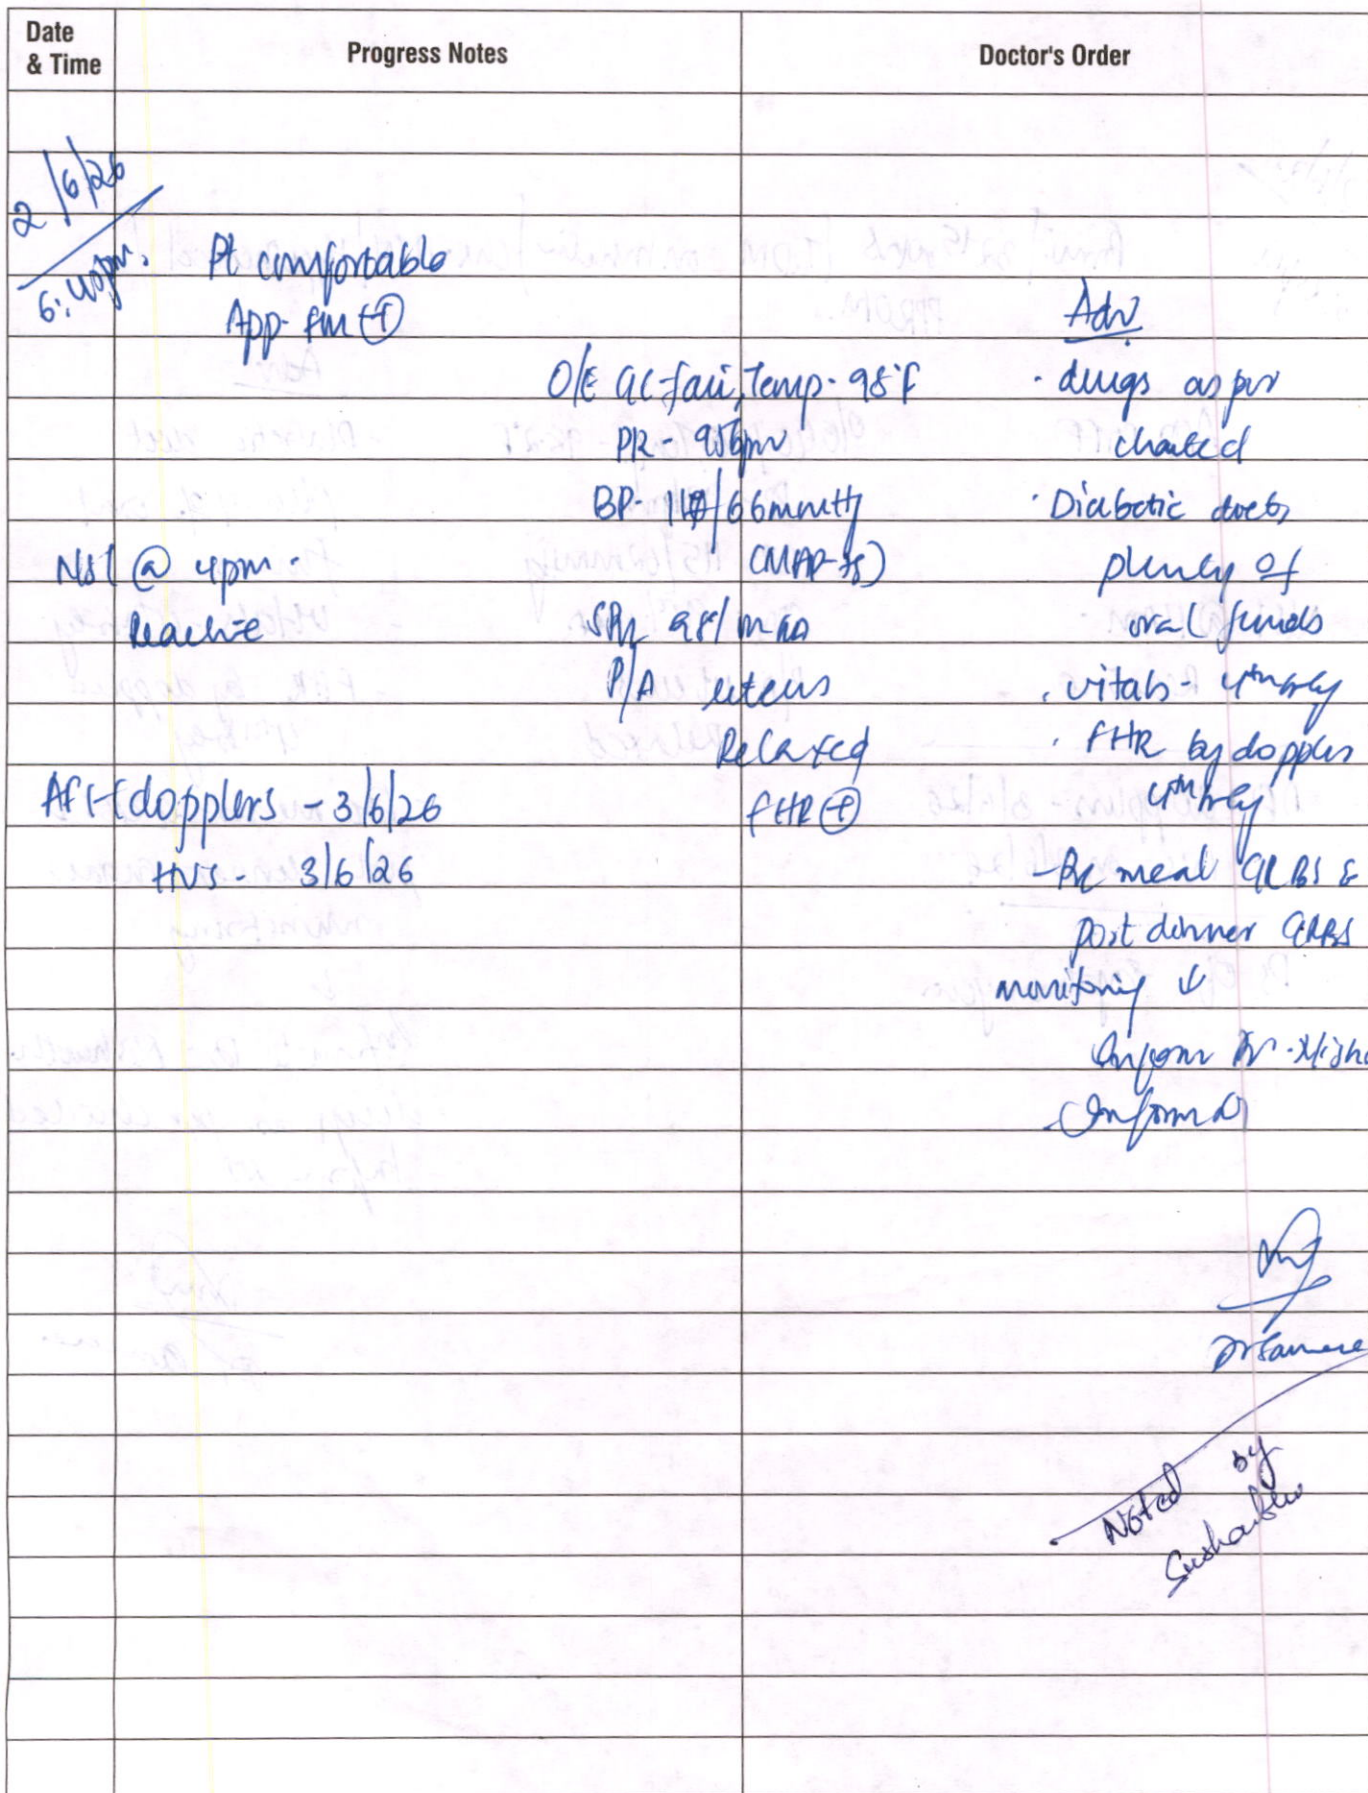 Date & Time
Progress Notes
Doctor's Order
2/6/26
6:40pm.
Pt comfortable
App. fm (+)
O/E GC-fair, Temp- 98°F
PR-
BP- /66mmHg
(MAP-
SPO2 98% m RA
P/A uterus
Relaxed
FHR (+)
NST @ 4pm.
Reactive
AFI + dopplers - 3/6/26
HVS - 3/6/26
Adv
. drugs as per
charted
. Diabetic diet,
plenty of
oral fluids
. vitals - 4th hrly
. FHR by doppler
4th hrly
- Pre meal GRBS &
post dinner GRBS
monitoring ↓
Inform Dr.
(Informed)
Noted by